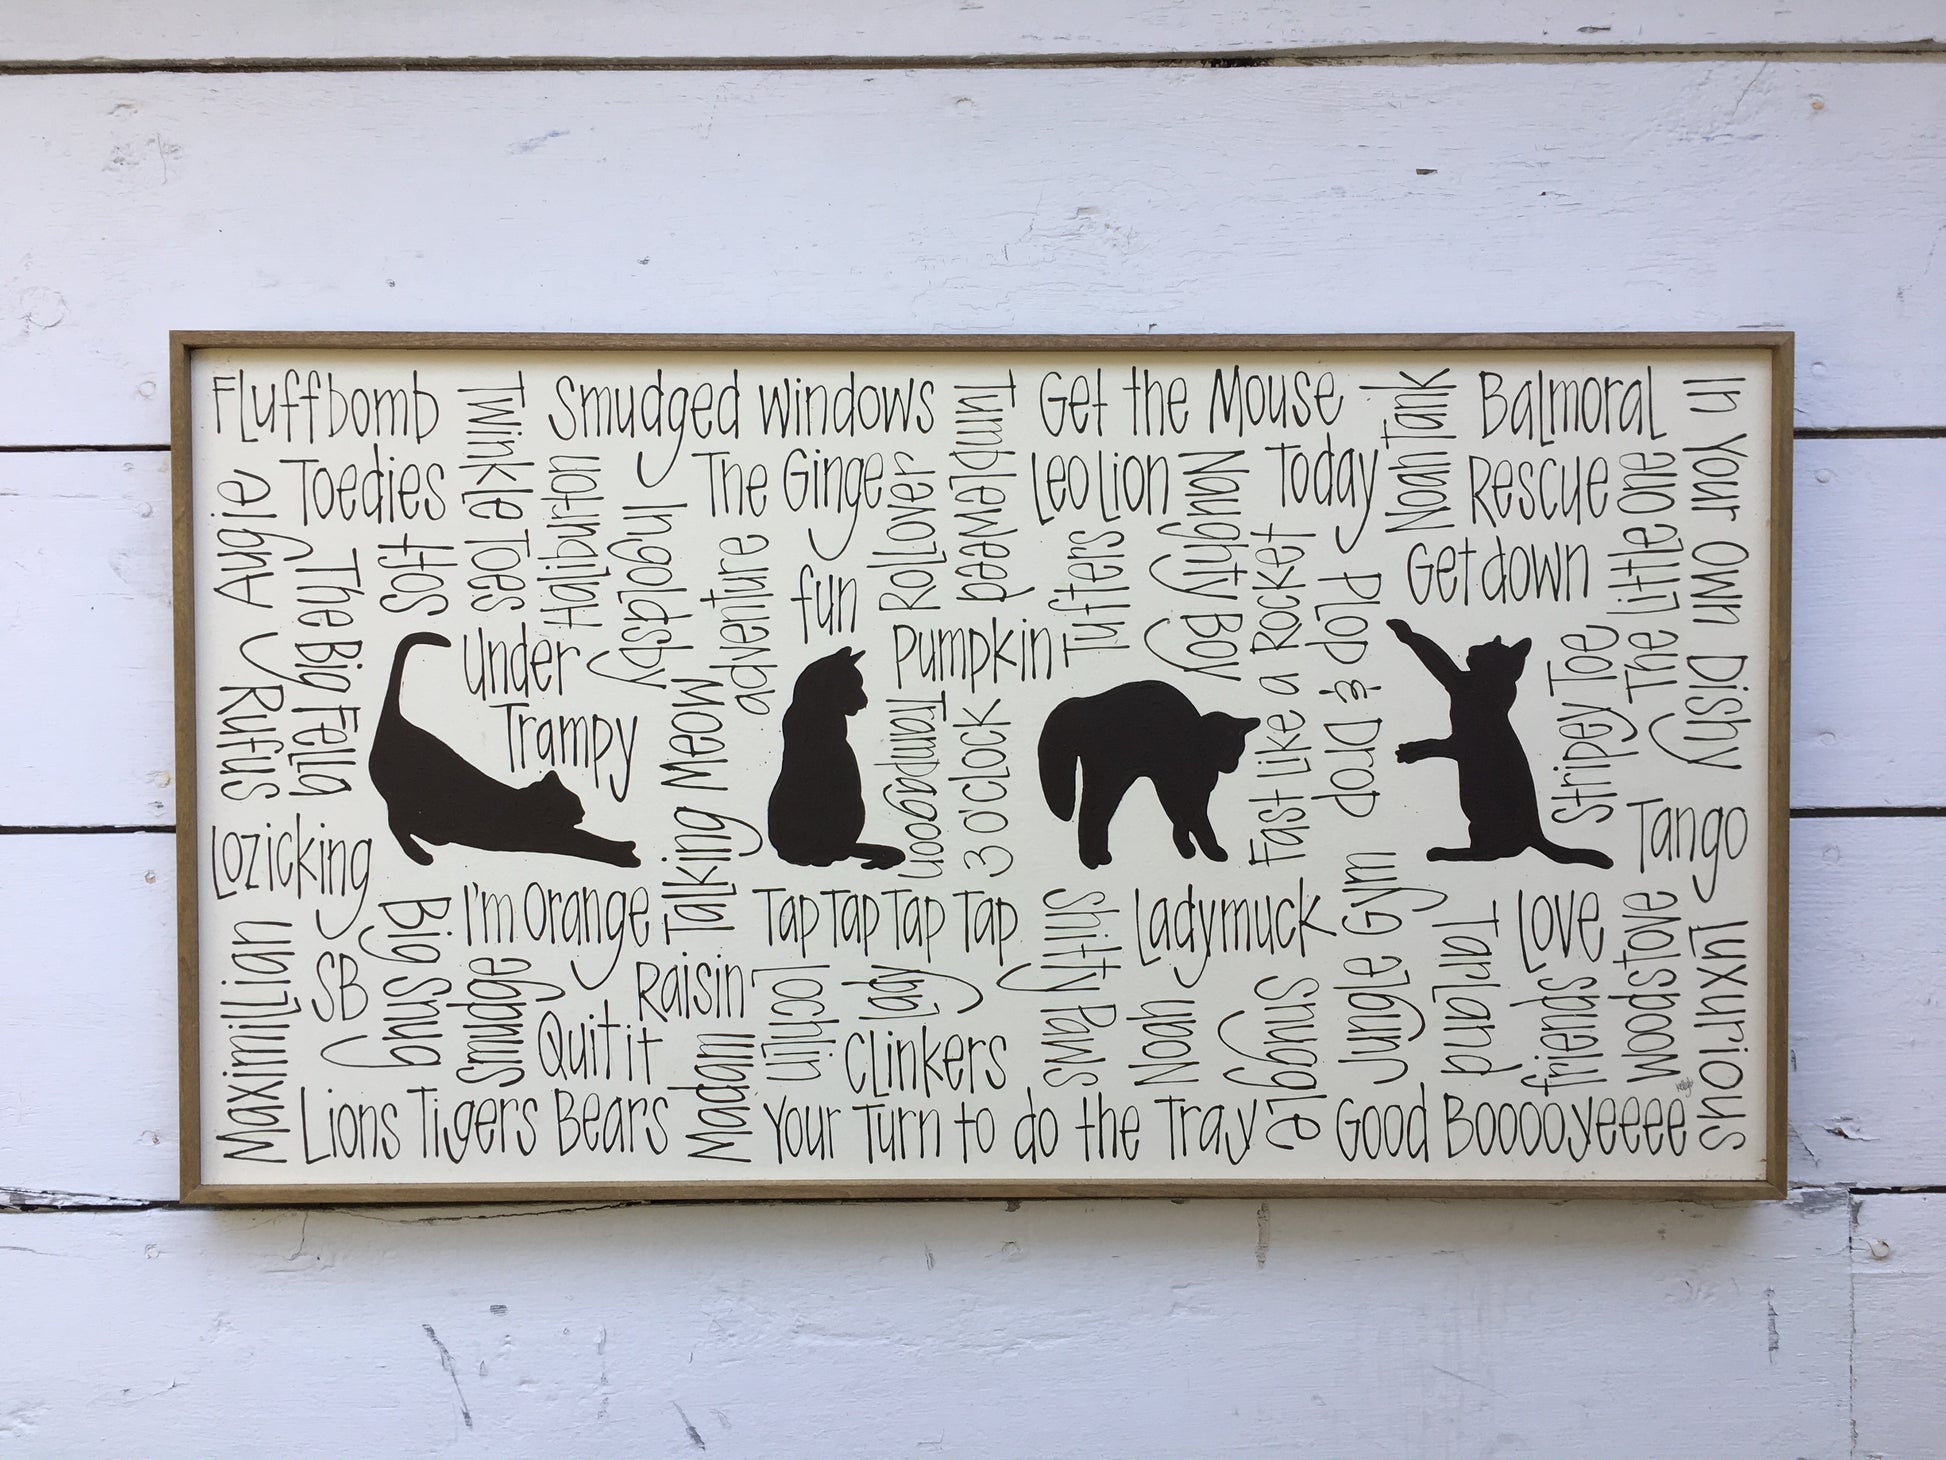 Fluffbomb
Twinkle Toes
Smudged windows
Tumbleweed
Get the Mouse
Noah Tank
Balmoral
In Your Own Dishy
Augie
Toedies
Hos
Haliburton
Ingoldsby
The Ginge
Rollover
Leo Lion
Naughty Boy
Today
Rescue
The Little One
The Big Fella
adventure
fun
Tufters
Fast Like a Rocket
Plop & Drop
Get down
Rufus
Under
Trampy
Talking Meow
Pumpkin
Tamagoon
3 O'clock
Stripey Toe
Lozicking
Tango
Maximillian
SB
Big Snug
I'm Orange
Tap Tap Tap Tap
Shifty Paws
Ladymuck
Jungle Gym
Tarland
Love
Woodstove
Luxurious
Smudge
Raisin
Lochlin
Lady
Noah
Snuggle
friends
Quit it
Madam
Clinkers
Lions Tigers Bears
Your Turn to do the Tray
Good Booooyeeee